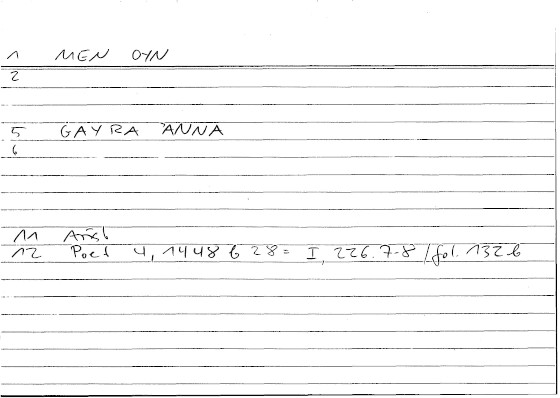 1 MEN OYN
2
5 GAYRA ANNA
6
11 Arist
12 Poet 4, 1448 b 28 = I, 226.7-8 / fol. 132 b